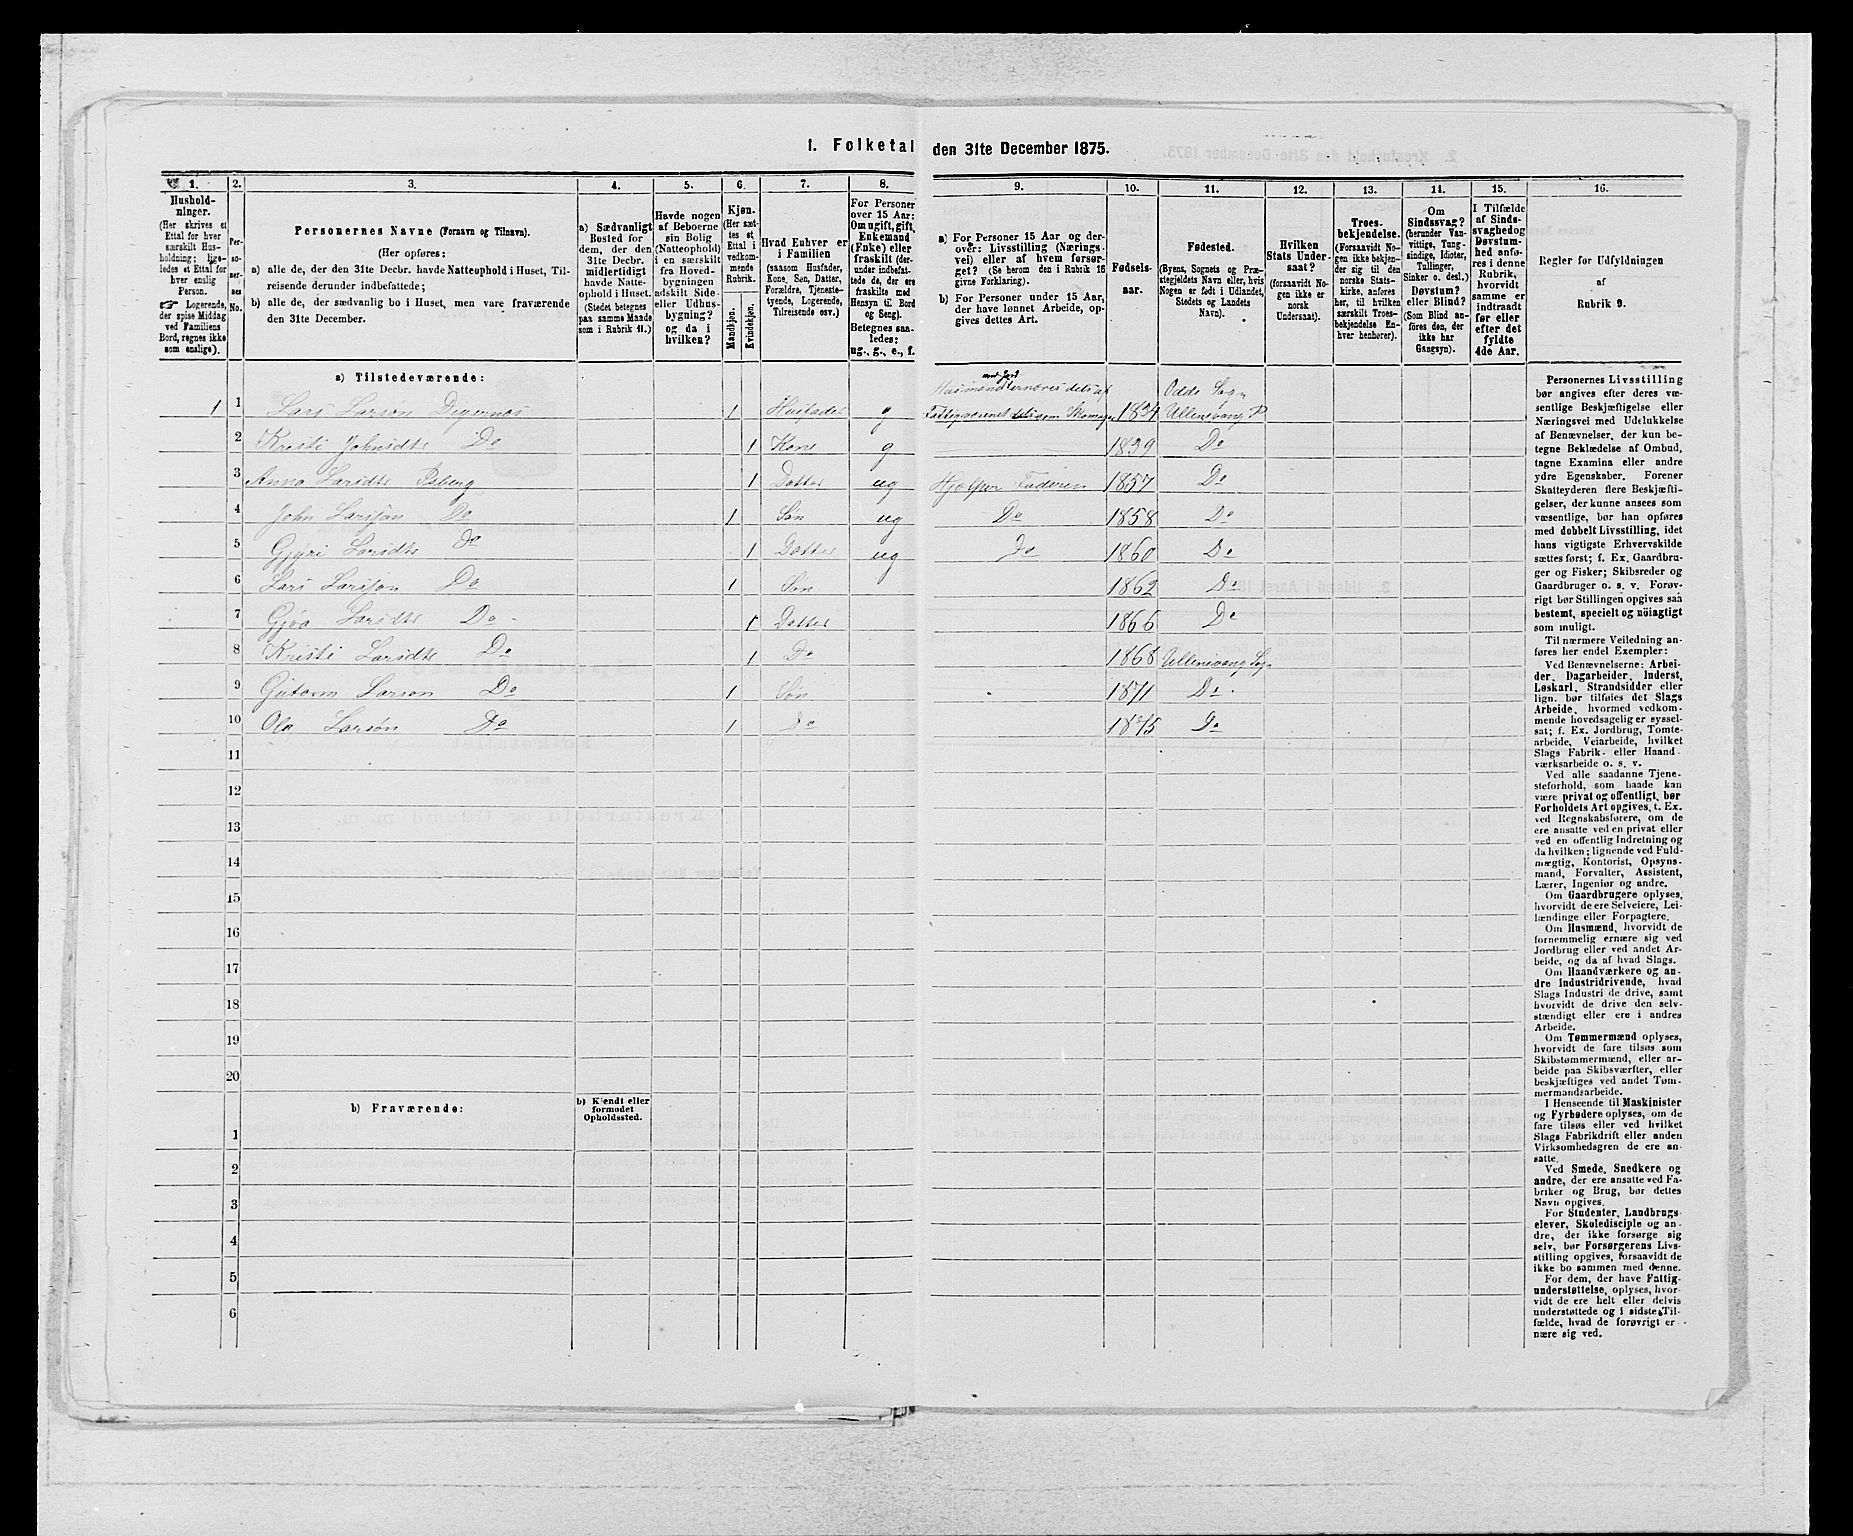 1. Folketal den 31te December 1875.
1.
Hushold-
ninger.
(Her skrives et
Ettal for hver
særskilt Hus-
holdning; lige-
ledes et Ettal for
hver enslig
Person.
☞ Logerende,
der spise Middag
ved Familiens
Bord, regnes ikke
som enslige).
2.
Per-
so-
ner-
nes
No.
3.
Personernes Navne (Fornavn og Tilnavn).
(Her opføres:
a) alle de, der den 31te Decbr. havde Natteophold i Huset, Til-
reisende derunder indbefattede;
b) alle de, der sædvanlig bo i Huset, men vare fraværende
den 31te December.
4.
a) Sædvanligt
Bosted for
dem, der den
31te Decbr.
midlertidigt
havde Natte-
ophold i Huset.
(Stedet betegnes
paa samme Maade
som i Rubrik 11.)
5.
Havde nogen
af Beboerne
sin Bolig
(Natteophold)
i en særskilt
fra Hoved-
bygningen
adskilt Side-
eller Udhus-
bygning?
og da i
hvilken?
6.
Kjøn.
(Her sæt-
tes et
Ettal i
vedkom-
mende
Rubrik.
Mandkjøn.
Kvindekjøn.
7.
Hvad Enhver er
i Familien
(saasom Husfader,
Kone, Søn, Datter,
Forældre, Tjeneste-
tyende, Logerende,
Tilreisende osv.)
8.
For Personer
over 15 Aar:
Om ugift, gift,
Enkemand
(Enke) eller
fraskilt (der-
under indbefat-
tede de, der ere
fraskilte med
Hensyn til Bord
og Seng).
Betegnes saa-
ledes:
ug., g., e., f.
9.
a) For Personer 15 Aar og der-
over: Livsstilling (Nærings-
vei) eller af hvem forsør-
get? (Se herom den i Rubrik 16
givne Forklaring).
b) For Personer under 15 Aar,
der have lønnet Arbeide, op-
gives dettes Art.
10.
Fødsels-
aar.
11.
Fødested.
(Byens, Sognets og Præ-
stegjeldets Navn eller, hvis
Nogen er født i Udlandet,
Stedets og Landets
Navn).
12.
Hvilken
Stats Under-
saat?
(forsaavidt No-
gen ikke er
norsk
Undersaat).
13.
Troes-
bekjendelse.
(Forsaavidt No-
gen ikke bekjen-
der sig til den
norske Stats-
kirke, anføres
her, til hvilken
særskilt Troes-
bekjendelse En-
hver henhører).
14.
Om
Sindssvag?
(herunder Van-
vittige, Tung-
sindige, Idioter,
Tullinger,
Sinker o. desl.)
Døvstum?
eller Blind?
(Som Blind an-
føres den, der
ikke har
Gangsyn).
15.
I Tilfælde
af Sinds-
svaghed og
Døvstum-
hed anfø-
res i denne
Rubrik,
hvorvidt
samme er
indtraadt
før eller
efter det
fyldte
4de Aar.
16.
Regler for Udfyldningen
af
Rubrik 9.
a) Tilstedeværende:
1 1 Lars Larsøn Digernes 1 Husfader g
Husmand med Jord ernæres dels af Fattigvæsenet dels som Skomager 1834 Odde Sogn Ullensvang P
2 Kristi Johnsdtr Do 1 Kone g 1839 Do
3 Anna Larsdtr Isberg 1 Datter ug Hjælper Faderen 1857 Do
4 John Larssøn Do 1 Søn ug Do 1858 Do
5 Gjyri Larsdtr Do 1 Datter ug Do 1860 Do
6 Lars Larssøn Do 1 Søn 1862 Do
7 Gjøa Larsdtr Do 1 Datter 1866 Do
8 Kristi Larsdtr Do 1 Do 1868 Ullensvang Sogn
9 Gutorm Larsøn Do 1 Søn 1871 Do
10 Ola Larsøn Do 1 Do 1875 Do
11
12
13
14
15
16
17
18
19
20
b) Fraværende:
b) Kjendt eller
formodet
Opholdssted.
1
2
3
4
5
6
Personernes Livsstilling
bør angives efter deres væ-
sentlige Beskjæftigelse eller
Næringsvei med Udelukkelse
af Benævnelser, der kun be-
tegne Beklædelse af Ombud,
tagne Examina eller andre
ydre Egenskaber. Forener
Skatteyderen flere Beskjæfti-
gelser, der kunne ansees som
væsentlige, bør han opføres
med dobbelt Livsstilling, idet
hans vigtigste Erhvervskilde
sættes først; f. Ex. Gaardbru-
ger og Fisker; Skibsreder og
Gaardbruger o. s. v. Forøv-
rigt bør Stillingen opgives saa
bestemt, specielt og nöiagtigt
som muligt.
Til nærmere Veiledning an-
føres her endel Exempler:
Ved Benævnelserne: Arbei-
der, Dagarbeider, Inderst,
Løskarl, Strandsidder eller
lign. bør tilføies det Slags
Arbeide, hvormed vedkom-
mende hovedsagelig er syssel-
sat; f. Ex. Jordbrug, Tomte-
arbeide, Veiarbeide, hvilket
Slags Fabrik- eller Haand-
værksarbeide o. s. v.
Ved alle saadanne Tjene-
steforhold, som baade kan
være privat og offentligt, bør
Forholdets Art opgives, t. Ex.
ved Regnskabsførere, om de
ere ansatte ved en privat eller
ved en offentlig Indretning og
da hvilken; lignende ved Fuld-
mægtig, Kontorist, Opsyns-
mand, Forvalter, Assistent,
Lærer, Ingeniør og andre.
Om Gaardbrugere oplyses,
hvorvidt de ere Selveiere, Lei-
lændinge eller Forpagtere.
Om Husmænd, hvorvidt de
fornemmelig ernære sig ved
Jordbrug eller ved andet Ar-
beide, og da af hvad Slags.
Om Haandværkere og an-
dre Industridrivende, hvad
Slags Industri de drive, samt
hvorvidt de drive den selv-
stændigt eller ere i andres
Arbeide.
Om Tømmermænd oplyses,
hvorvidt de fare tilsøs som
Skibstømmermænd, eller ar-
beide paa Skibsværfter, eller
beskjæftiges ved andet Tøm-
mermandsarbeide.
I Henseende til Maskinister
og Fyrbødere oplyses, om de
fare tilsøs eller ved hvilket
Slags Fabrikdrift eller anden
Virksomhedsgren de ere an-
satte.
Ved Smede, Snedkere og
andre, der ere ansatte ved Fa-
briker og Brug, bør dettes
Navn opgives.
For Studenter, Landbrugs-
elever, Skoledisciple og an-
dre, der ikke forsørge sig
selv, bør Forsørgerens Livs-
stilling opgives, forsaavidt de
ikke bo sammen med denne.
For dem, der have Fattig-
understøttelse, oplyses, hvor-
vidt de ere helt eller delvis
understøttede og i sidste Til-
fælde, hvad de forøvrigt er-
nære sig ved.